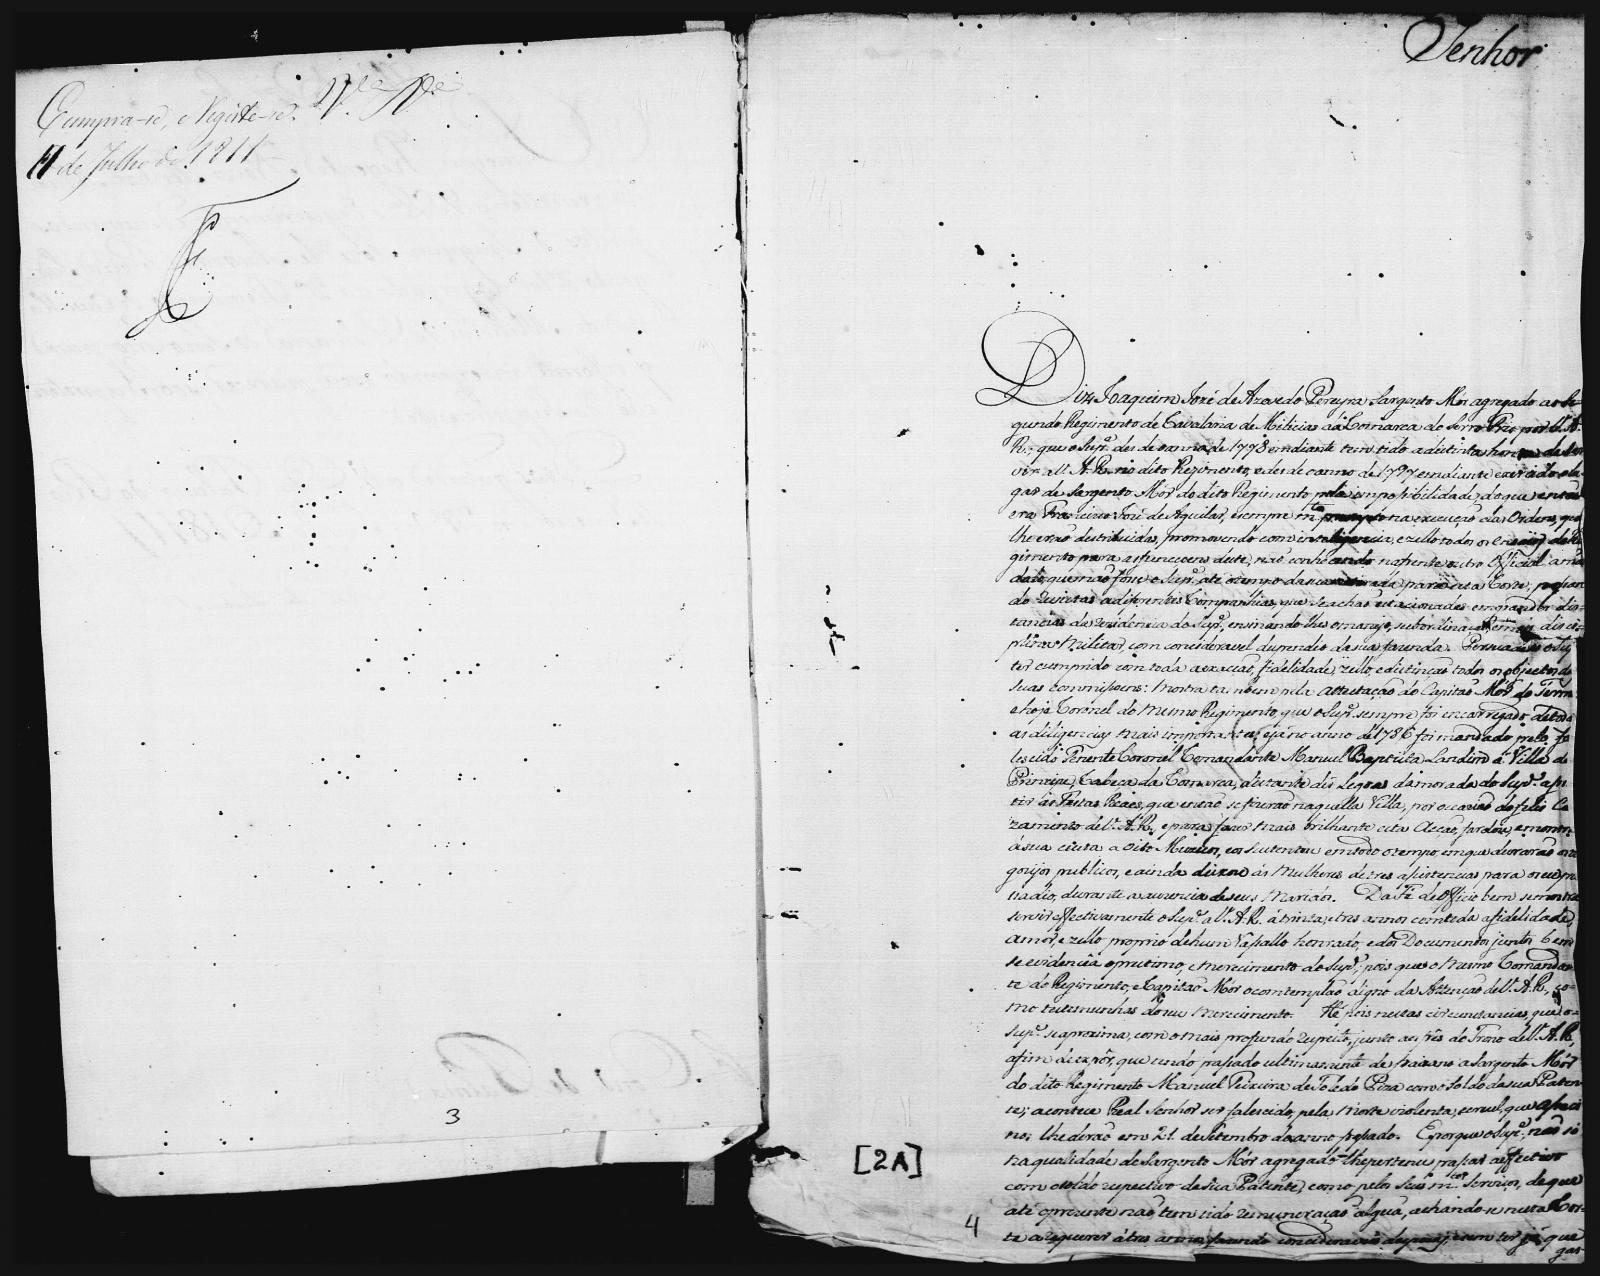 Cumpra-se, e Registe-se.
11 de Julho de 1811
3
Senhor
Diz Joaquim José de Azevedo Pereyra Sargento Mór agregado ao Se-
gundo Regimento de Cavalaria de Milicias da Comarca do Serro Frio por V. A.
R., que o Supe. des de o anno de 1778 em diante tem tido a distinta honra de ser
vir a V. A. R. no dito Regimento, e des de o anno de 1797 em diante exercido o lu
gar de Sargento Mór do dito Regimento pela imposibilidade do que entaõ
era Francisco José de Aguilar, e sempre m.to prompto na execuçaõ das Ordens, que
lhe eraõ destribuidas, promovendo com inteligencia, e zello todos os ensaios do Re
gimento para as funcoens deste, naõ conhecendo na frente outro Official
que naõ fosse o Supe. até o tempo da sua retirada para esta Corte; passan
do revistas a diferentes Companhias, que se achaõ estacionadas em grandes dis-
tancias da rezidencia do Supe., ensinando-lhes o manejo, subordinaçaõ, e mais disci-
plina Militar, com concideravel dispendio da sua fazenda. Persuadese o Supe
ter cumprido com toda a exacçaõ, fidelidade, zello, e distinçaõ todos os objectos de
suas commissoens: mostra tambem pela Attestaçaõ do Capitaõ Mór do Termo
e hoje Coronel do mesmo Regimento, que o Supe. sempre foi encarregado de todas
as diligencias mais importantes, e já no anno de 1786 foi mandado pelo fa
lescido Tenente Coronel Comandante Manuel Baptista Landim á Villa do
Principe, Cabeça da Comarca, distante dês Legoas da morada do Supe. assis
tir ás Festas Reaes, que entaõ se fizeraõ naquella Villa, por ocaziaõ do felis Ca
zamento de V. A. R., e para fazer mais brilhante esta Acçaõ, fardou, e montou
á sua custa a oito Muzicos, e os sustentou em todo o tempo, em que duraraõ os re
gozijos publicos, e ainda deixou ás Mulheres destes asistencias para o seu pa
sadio, durante a auzencia de seus Maridos. Da Fé de Officio bem se mostra
servir effectivamente o Supe. a V. A. R. á trinta, e tres annos com toda a fidelidade,
amor, e zello proprio de hum Vassallo honrado, e dos Documentos juntos bem
se evidencêa o prestimo, e merecimento do Supe.; pois que o mesmo Comandan
te do Regimento, e Capitaõ Mór o contemplaõ digno da Attençaõ de V. A. R., co-
mo testemunhas do seu merecimento. Hé pois nestas circunstancias, que o
Supe. se aproxima, com o mais profundo respeito, junto aos Pés do Trono de V. A. R.
afim de expôr, que tendo passado ultimamente de paizano a Sargento Mór
do dito Regimento Manuel Teixeira de Toledo Piza com o Soldo da sua Paten
te; acontece Real Senhor ser falescido, pela morte violenta, e cruel, que
lhe deraõ em 21. de Setembro do anno passado. E porque o Supe., naõ só
na qualidade de Sargento Mór agregado lhe pertence passar a effectivo
com o soldo respectivo de sua Patente, como pelos seus m.tos Serviços, de que
até o prezente naõ, tem tido remuneraçaõ algua, achando-se nesta Cor-
te a requerer á tres annos fazendo concideraveis despezas, sem ter já que
gas-
[2A]
4